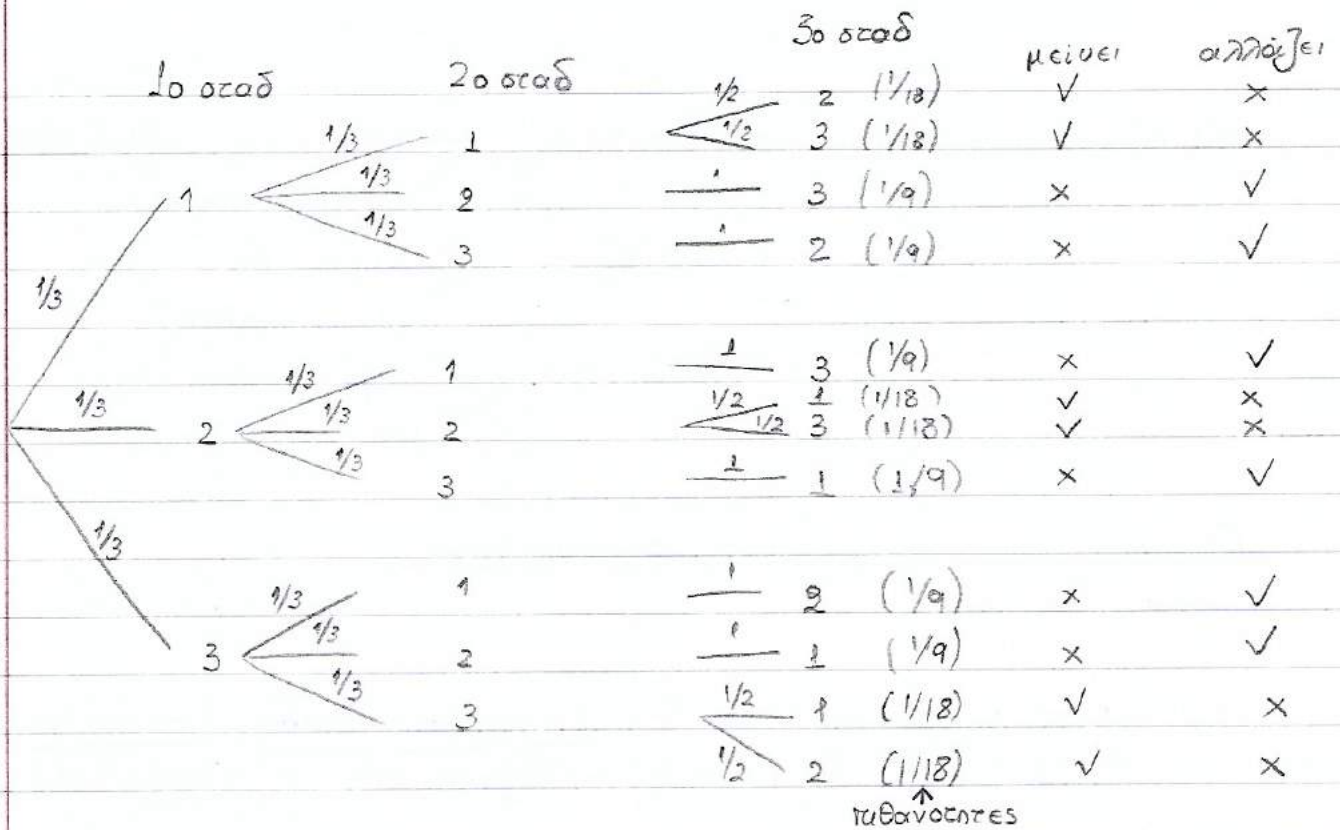 1ο σταδ 2ο σταδ 3ο σταδ μείνει αλλάζει
1/2 2 (1/18) ✓ ×
1/3 1 1/2 3 (1/18) ✓ ×
1 1/3 2 1 3 (1/9) × ✓
1/3 3 1 2 (1/9) × ✓
1/3
1/3 1 1 3 (1/9) × ✓
1/2 1 (1/18) ✓ ×
1/3 2 1/3 2 1/2 3 (1/18) ✓ ×
1/3 3 1 1 (1/9) × ✓
1/3
1/3 1 1 2 (1/9) × ✓
3 1/3 2 1 1 (1/9) × ✓
1/3 3 1/2 1 (1/18) ✓ ×
1/2 2 (1/18) ✓ ×
↑
πιθανότητες